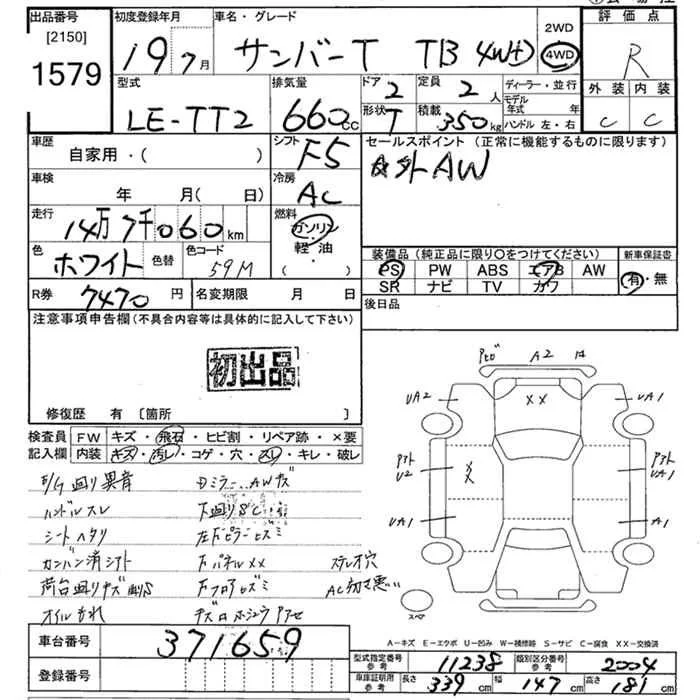 出品番号
[2150]
1579
初度登録年月
19 7月
車名・グレード
サンバーT TB 4WD
2WD
4WD
評価点
R
外装 内装
C C
型式
LE-TT2
排気量
660cc
ドア
2
定員
2人
形状
T
積載
350kg
ディーラー・並行
モデル年式 年
ハンドル 左・右
車歴
自家用・( )
シフト
F5
セールスポイント(正常に機能するものに限ります)
社外AW
車検
年 月(日)
冷房
AC
走行
14万7千060km
燃料
ガソリン
軽油
( )
色
ホワイト
色替
色コード
59M
装備品(純正品に限り〇をつけてください)
新車保証書
PS PW ABS エアB AW
有・無
SR ナビ TV カワ
R券
7470円
名変期限 月 日
後日品
注意事項申告欄(不具合内容等は具体的に記入して下さい)
初出品
修復歴 有 〔箇所 〕
検査員記入欄
FW キズ・飛石・ヒビ割・リペア跡・×要
内装 キズ・汚レ・コゲ・穴・スレ・キレ・破レ
E/G廻り異音
ハンドルスレ
シートヘタリ
オイルもれ
下廻りSC
ステレオ穴
車台番号
371659
登録番号
A2
UA2
UA1
XX
U2
UA1
UA1
A1
スペア
A=キズ E=エクボ U=凹み W=補修跡 S=サビ C=腐食 XX=交換済
型式指定番号 参考
11238
類別区分番号 参考
2004
車庫証明用 参考
長さ 339cm 幅 147cm 高さ 181cm